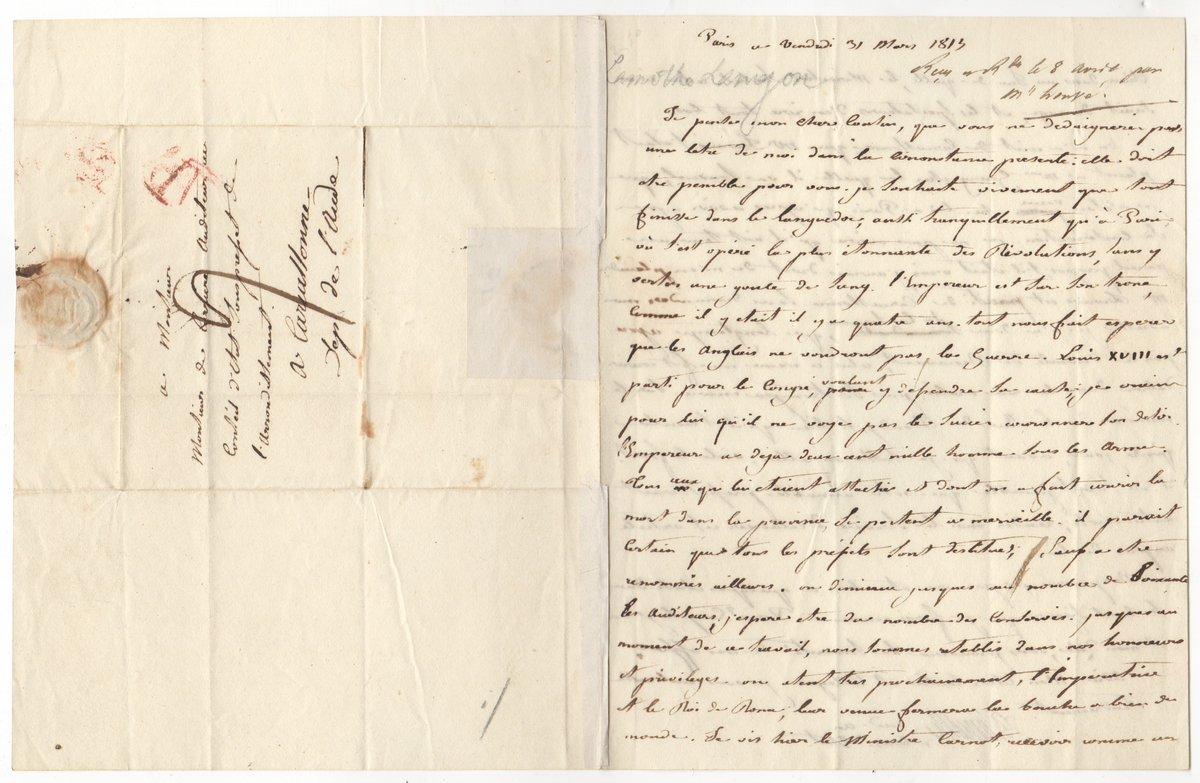 a Monsieur
Monsieur de Auditeur au
Conseil d'etat Sous prefet de
l'arrondissement
a Carcassonne
Dep de l'Aude
Paris ce Vendredi 31 Mars 1815
Lamothe Langon
Reçu et R le 8 avril par
Mr
Je pense mon cher Cousin, que vous ne dedaignerez pas
une letre de moi dans la circonstance presente. elle doit
etre penible pour vous. je souhaite vivement que tout
finisse dans le languedoc, aussi tranquillement qu'a Paris
où s'est opéré la plus étonnante des Révolutions, sans y
verser une goute de sang. l'Empereur est sur son trone,
comme il y etait il y a quatre ans. tout nous fait esperer
que les Anglais ne voudront pas la Guerre. Louis XVIII est
parti pour le Congré, voulant y defendre sa cause, je crains
pour lui qu'il ne voye pas le succes couronner son desir.
l'Empereur a deja deux cent mille homme sous les Arme.
Tous ceux qui lui etaient attachés et dont on a fait courir la
mort dans la province, se portent a merveille. il parait
certain que tous les préfets sont destitués, Sauf a etre
renommés ailleurs. on diminue jusques au nombre de Soixante
les Auditeurs, j'espere etre du nombre des conservés. jusques au
moment de ce travail, nous sommes retablis dans nos honneurs
et privileges. on atent tres prochainement, l'Imperatrice
et le Roi de Rome, leur venue fermera la bouche a bien du
monde. Je vis hier le Ministre Carnot, comme un